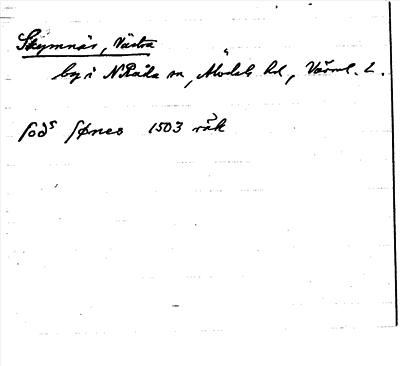 Skymnäs, Västra
by i N Råda sn, Älvdals hd, Värml. L.
1503 räk